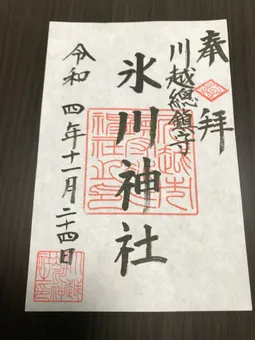 奉拝
川越總鎮守
氷川神社
令和四年十一月二十四日